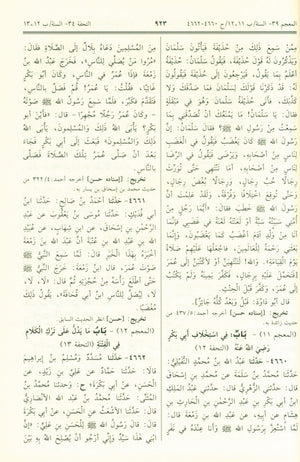 المعجم ٣٩- السنة/ب ١١، ١٢/ح ٤٦٦٠-٤٦٦٢ ٩٢٣ التحفة ٣٤- السنة/ب ١٢، ١٣
مِمَّنْ سَمِعَ ذَلِكَ مِنْ حُذَيْفَةَ فَيَأْتُونَ سَلْمَانَ
وَيَذْكُرُونَ لَهُ قَوْلَ حُذَيْفَةَ، فَيَقُولُ سَلْمَانُ: حُذَيْفَةُ
أَعْلَمُ بِمَا يَقُولُ، فَيَرْجِعُونَ إِلَى حُذَيْفَةَ فَيَقُولُونَ
لَهُ: قَدْ ذَكَرْنَا قَوْلَكَ لِسَلْمَانَ فَمَا صَدَّقَكَ وَلَا
كَذَّبَكَ، فَأَتَى حُذَيْفَةُ سَلْمَانَ وَهُوَ فِي مَبْقَلَةٍ
فَقَالَ: يَا سَلْمَانُ! مَا يَمْنَعُكَ أَنْ تُصَدِّقَنِي بِمَا
سَمِعْتُ مِنْ رَسُولِ اللهِ ﷺ؟ فَقَالَ سَلْمَانُ: إِنَّ
رَسُولَ اللهِ ﷺ كَانَ يَغْضَبُ فَيَقُولُ في الْغَضَبِ
لِنَاسٍ مِنْ أَصْحَابِهِ، وَيَرْضَى فَيَقُولُ في الرِّضَا
لِنَاسٍ مِنْ أَصْحَابِهِ، أَمَا تَنْتَهِي حَتَّى تُوَرِّثَ
رِجَالًا حُبَّ رِجَالٍ، وَرِجَالًا بُغْضَ رِجَالٍ،
وَحَتَّى تُوقِعَ اخْتِلَافًا وَفُرْقَةً، وَلَقَدْ عَلِمْتَ أَنَّ
رَسُولَ اللهِ ﷺ خَطَبَ فَقَالَ: «أَيُّمَا رَجُلٍ مِنْ
أُمَّتِي سَبَبْتُهُ سَبَّةً أَوْ لَعَنْتُهُ لَعْنَةً في غَضَبِي فَإِنَّمَا
أَنَا مِنْ وَلَدِ آدَمَ أَغْضَبُ كَمَا يَغْضَبُونَ، وَإِنَّمَا
بَعَثَنِي رَحْمَةً لِلْعَالَمِينَ، فَاجْعَلْهَا عَلَيْهِمْ صَلَاةً
يَوْمَ الْقِيَامَةِ»، وَاللهِ! لَتَنْتَهِيَنَّ أَوْ لَأَكْتُبَنَّ إِلَى عُمَرَ
إِلَى عُمَرَ، وَكَفَّرَ قَبْلَ الْحِنْثِ.
(المعجم ١١) - بَابٌ: فِي اسْتِخْلَافِ أَبِي بَكْرٍ
رَضِيَ اللهُ عَنْهُ (التحفة ١٢)
٤٦٦٠- حَدَّثَنَا عَبْدُ اللهِ بْنُ مُحَمَّدٍ النُّفَيْلِيُّ:
حَدَّثَنَا مُحَمَّدُ بْنُ سَلَمَةَ عن مُحَمَّدِ بْنِ إِسْحَاقَ
قال: حَدَّثَنِي الزُّهْرِيُّ قال: حَدَّثَنِي عَبْدُ الْمَلِكِ
ابْنُ أَبِي بَكْرِ بْنِ عَبْدِ الرَّحْمٰنِ بْنِ الْحَارِثِ بْنِ
هِشَامٍ عن أَبِيهِ، عن عَبْدِ اللهِ بْنِ زَمْعَةَ قال:
لَمَّا اسْتُعِزَّ بِرَسُولِ اللهِ ﷺ وَأَنَا عِنْدَهُ في نَفَرٍ
مِنَ الْمُسْلِمِينَ دَعَاهُ بِلَالٌ إِلَى الصَّلَاةِ فقَالَ:
«مُرُوا مَنْ يُصَلِّي لِلنَّاسِ»، فَخَرَجَ عَبْدُ اللهِ بْنُ
زَمْعَةَ فإِذَا عُمَرُ في النَّاسِ، وكَانَ أَبُو بَكْرٍ
غَائِبًا، فَقُلْتُ: يَا عُمَرُ! قُمْ فَصَلِّ بالنَّاسِ،
فَتَقَدَّمَ فَكَبَّرَ، فَلمَّا سَمِعَ رَسُولُ اللهِ ﷺ صَوْتَهُ
- وكَانَ عُمَرُ رَجُلًا مُجْهِرًا - قالَ: «فأَيْنَ أَبُو
بَكْرٍ؟ يَأْبَى اللهُ ذٰلِكَ وَالمُسْلِمُونَ، يَأْبَى اللهُ
ذٰلِكَ وَالمُسْلِمُونَ» فَبَعَثَ إِلَى أَبِي بَكْرٍ فَجَاءَ
بَعْدَ أَنْ صَلَّى عُمَرُ تِلْكَ الصَّلَاةَ فَصَلَّى
بالنَّاسِ.
٤٦٦١- حَدَّثَنَا أَحْمَدُ بْنُ صَالِحٍ: حَدَّثَنَا ابْنُ
أَبِي فُدَيْكٍ: حَدَّثَنَا مُوسَى بْنُ يَعْقُوبَ عن عَبْدِ
الرَّحْمٰنِ بْنِ إِسْحَاقَ، عن ابْنِ شِهَابٍ، عن عُبَيْدِ
اللهِ بْنِ عَبْدِ اللهِ بْنِ عُتْبَةَ أَنَّ عَبْدَ اللهِ بْنَ زَمْعَةَ
أَخْبَرَهُ بِهٰذَا الْخَبَرِ قالَ: لَمَّا سَمِعَ النَّبِيُّ ﷺ
صَوْتَ عُمَرَ، قال ابْنُ زَمْعَةَ: خَرَجَ النَّبِيُّ ﷺ
حَتَّى أَطْلَعَ رَأْسَهُ مِنْ حُجْرَتِهِ ثُمَّ قال: «لَا، لَا،
لَا، لِيُصَلِّ لِلنَّاسِ ابْنُ أَبِي قُحَافَةَ»، يَقُولُ ذٰلِكَ
مُغْضَبًا.
(المعجم ١٢) - بَابُ مَا يَدُلُّ عَلَى تَرْكِ الْكَلَامِ
فِي الْفِتْنَةِ (التحفة ١٣)
٤٦٦٢- حَدَّثَنَا مُسَدَّدٌ وَمُسْلِمُ بْنُ إِبْرَاهِيمَ
قالَا: حَدَّثَنَا حَمَّادٌ عن عَلِيِّ بْنِ زَيْدٍ، عن
الْحَسَنِ، عن أَبِي بَكْرَةَ؛ ح: وَحدثنا مُحمَّدُ بْنُ
قال: حَدَّثَنِي الأَشْعَثُ عن الْحَسَنِ، عن أَبِي بَكْرَةَ
قال: قالَ رَسُولُ اللهِ ﷺ لِلْحَسَنِ بْنِ عَلِيٍّ: «إِنَّ
ابْنِي هٰذَا سَيِّدٌ وَإِنِّي أَرْجُو أَنْ يُصْلِحَ اللهُ بِهِ بَيْنَ